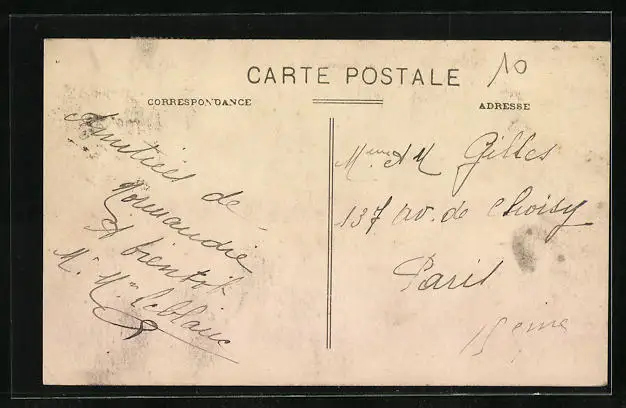 CARTE POSTALE
10
CORRESPONDANCE
ADRESSE
Amitiés de
Normandie
A bientôt
M. Mme Leblanc
Mme et M Gilles
137 av. de Choisy
Paris
15eme